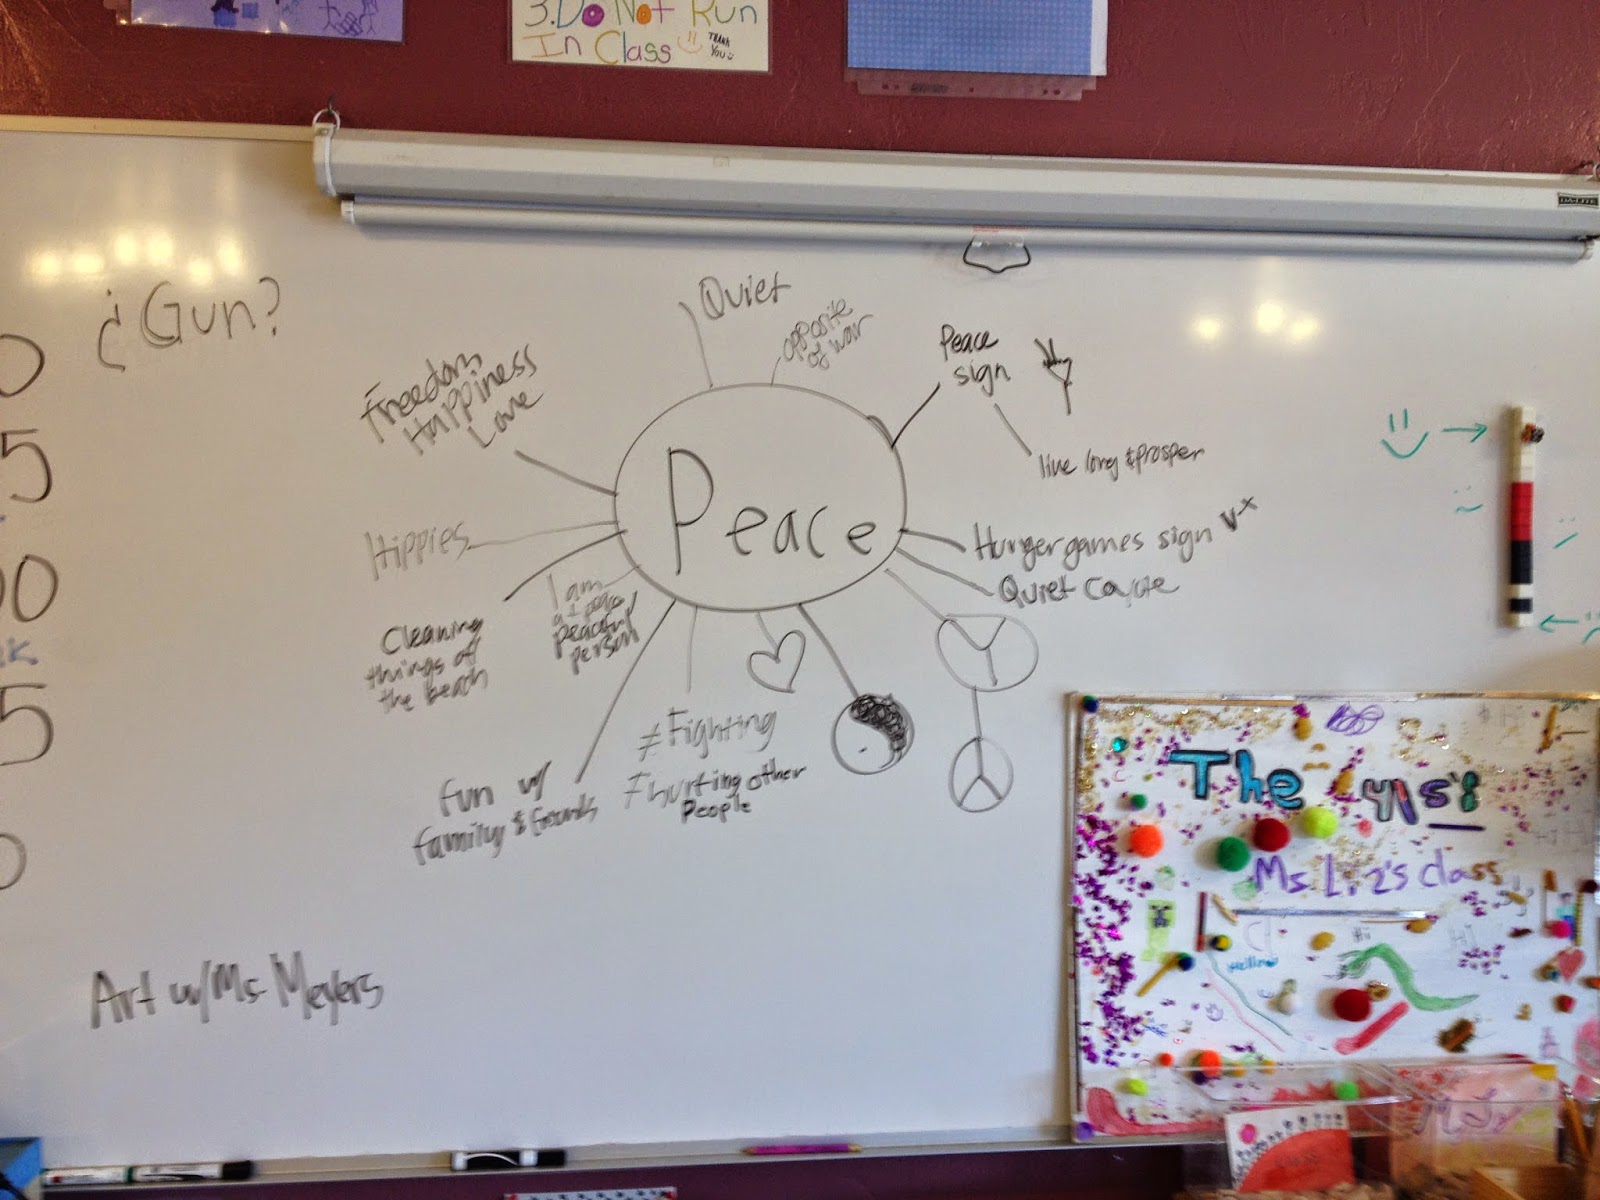 3. Do Not Run
In Class
THANK
YOU
DA-LITE
¿Gun?
Quiet
opposite
of war
Peace
sign
live long & prosper
Freedom
Happiness
Love
Peace
Hippies
Hunger games sign
Quiet
Cleaning
things at
the beach
I am
peaceful
person
≠ Fighting
≠ hurting other
People
fun w/
family &
Art w/ Ms Meyers
The
Ms Liz's class
Hi
Hi